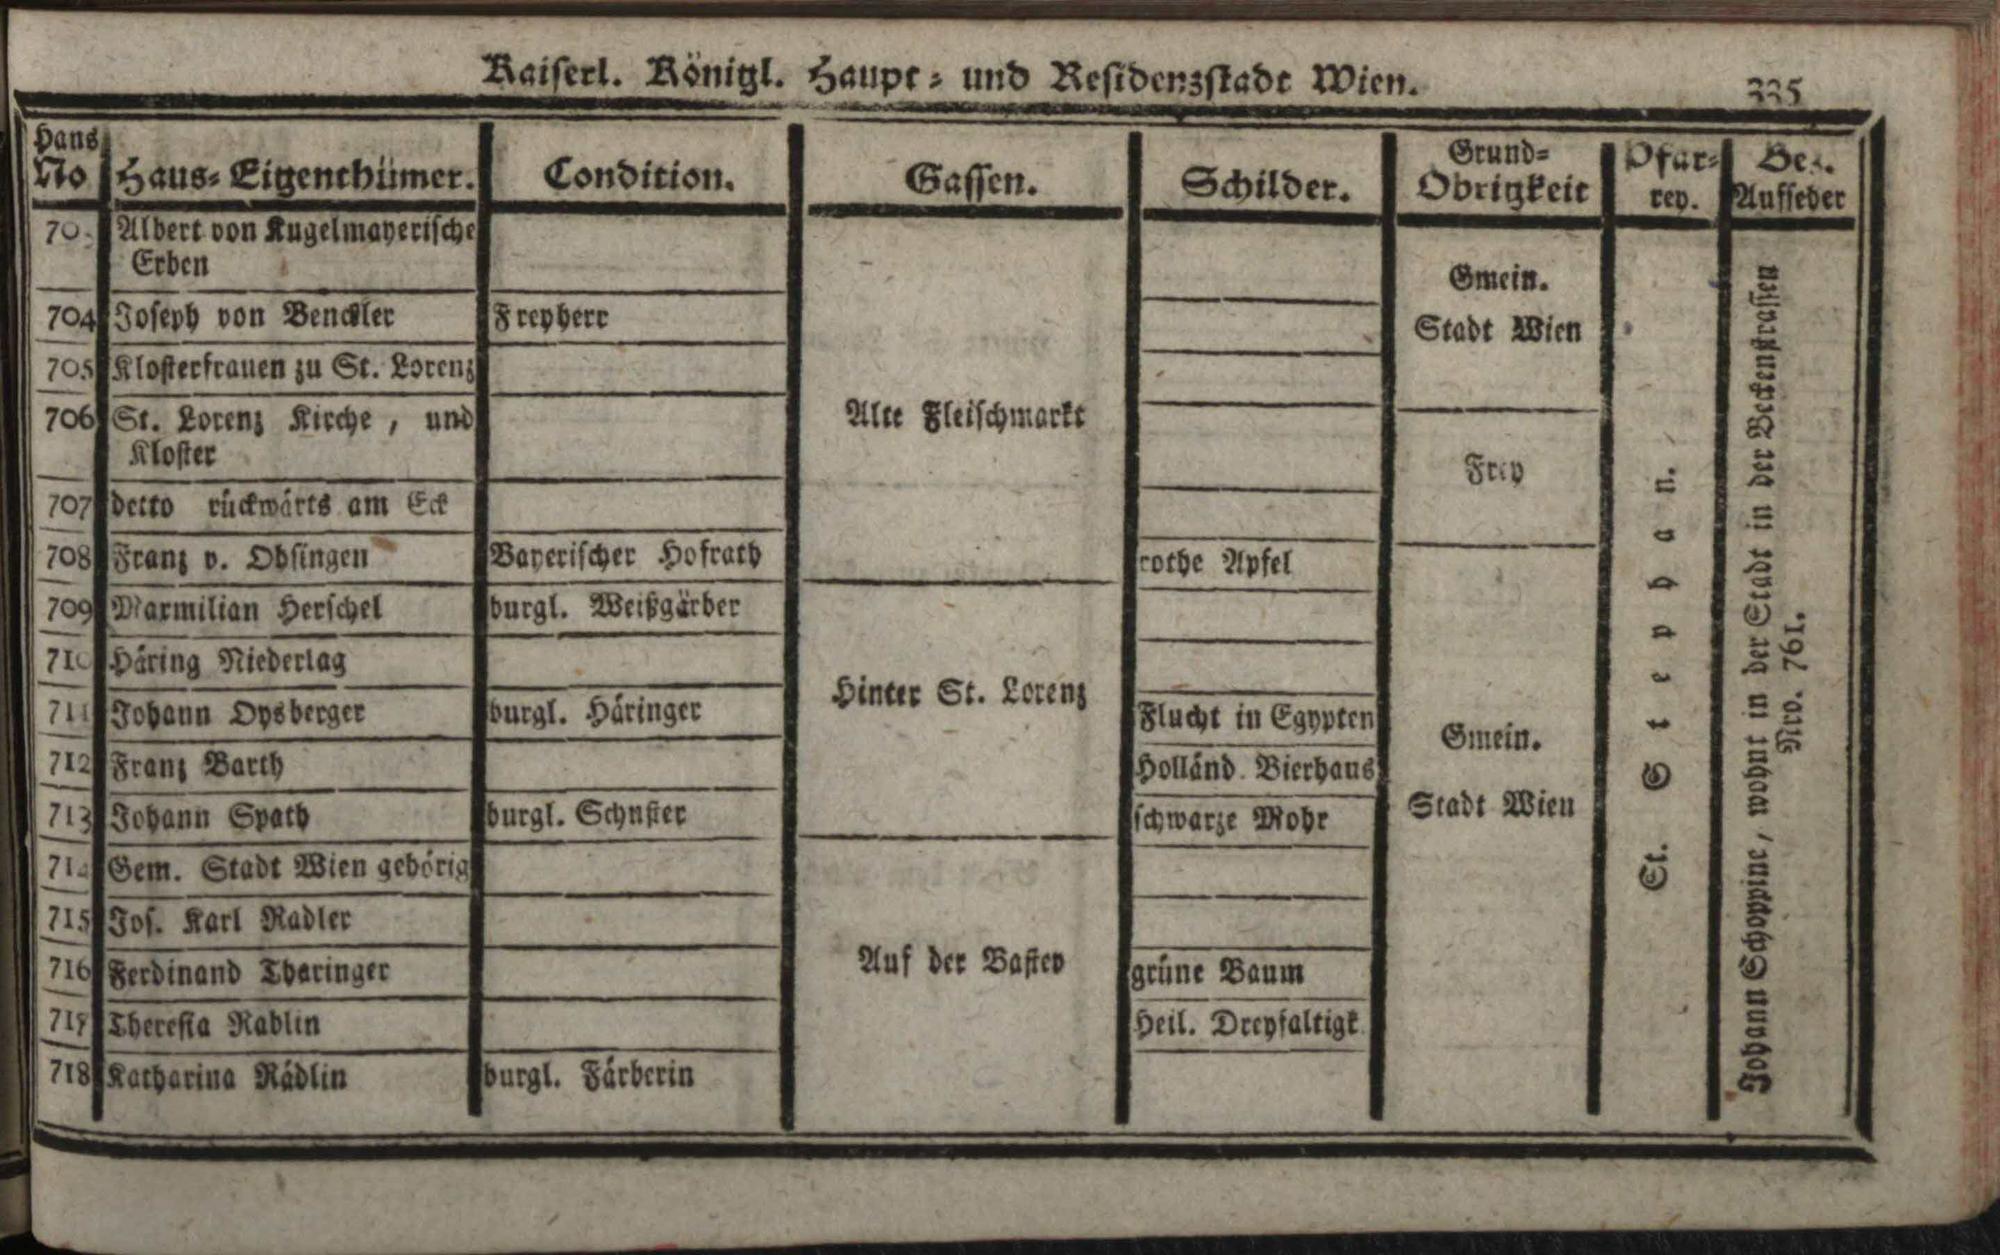 Kaiserl. Königl. Haupt- und Residenzstadt Wien. 335
Haus No Haus-Eigenthümer. Condition. Gassen. Schilder. Grund-Obrigkeit Pfarrey. Bez. Aufseher
703 Albert von Kugelmayerische
Erben
704 Joseph von Benckler Freyherr
705 Klosterfrauen zu St. Lorenz
706 St. Lorenz Kirche, und
Kloster
707 detto rückwärts am Eck
708 Franz v. Obsingen Bayerischer Hofrath rothe Apfel
709 Maxmilian Herschel burgl. Weißgärber
710 Häring Niederlag
711 Johann Opsberger burgl. Häringer Flucht in Egypten
712 Franz Barth Holländ. Bierhaus
713 Johann Spath burgl. Schuster schwarze Mohr
714 Gem. Stadt Wien gehörig
715 Jos. Karl Radler
716 Ferdinand Tharinger grüne Baum
717 Theresia Radlin Heil. Dreyfaltigk
718 Katharina Rädlin burgl. Färberin
Alte Fleischmarkt
Hinter St. Lorenz
Auf der Bastey
Gmein.
Stadt Wien
Frey
Gmein.
Stadt Wien
St. Stephan.
Johann Schoppine, wohnt in der Stadt in der Beckenstrassen
Nro. 761.